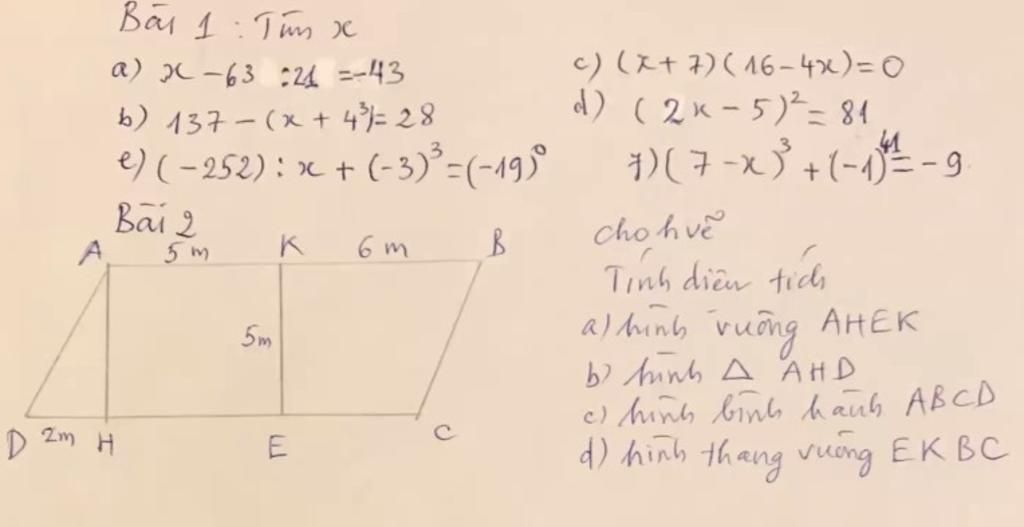 Bài 1 : Tìm x
a) x - 63 : 21 = -43
c) (x + 7)(16 - 4x) = 0
b) 137 - (x + 4³) = 28
d) (2x - 5)² = 81
e) (-252) : x + (-3)³ = (-19)⁰
7) (7 - x)³ + (-1)⁴¹ = -9
Bài 2
cho h vẽ
A 5 m K 6 m B
Tính diện tích
a) hình vuông AHEK
5m
b) hình △ AHD
c) hình bình hành ABCD
D 2m H E C
d) hình thang vuông EKBC